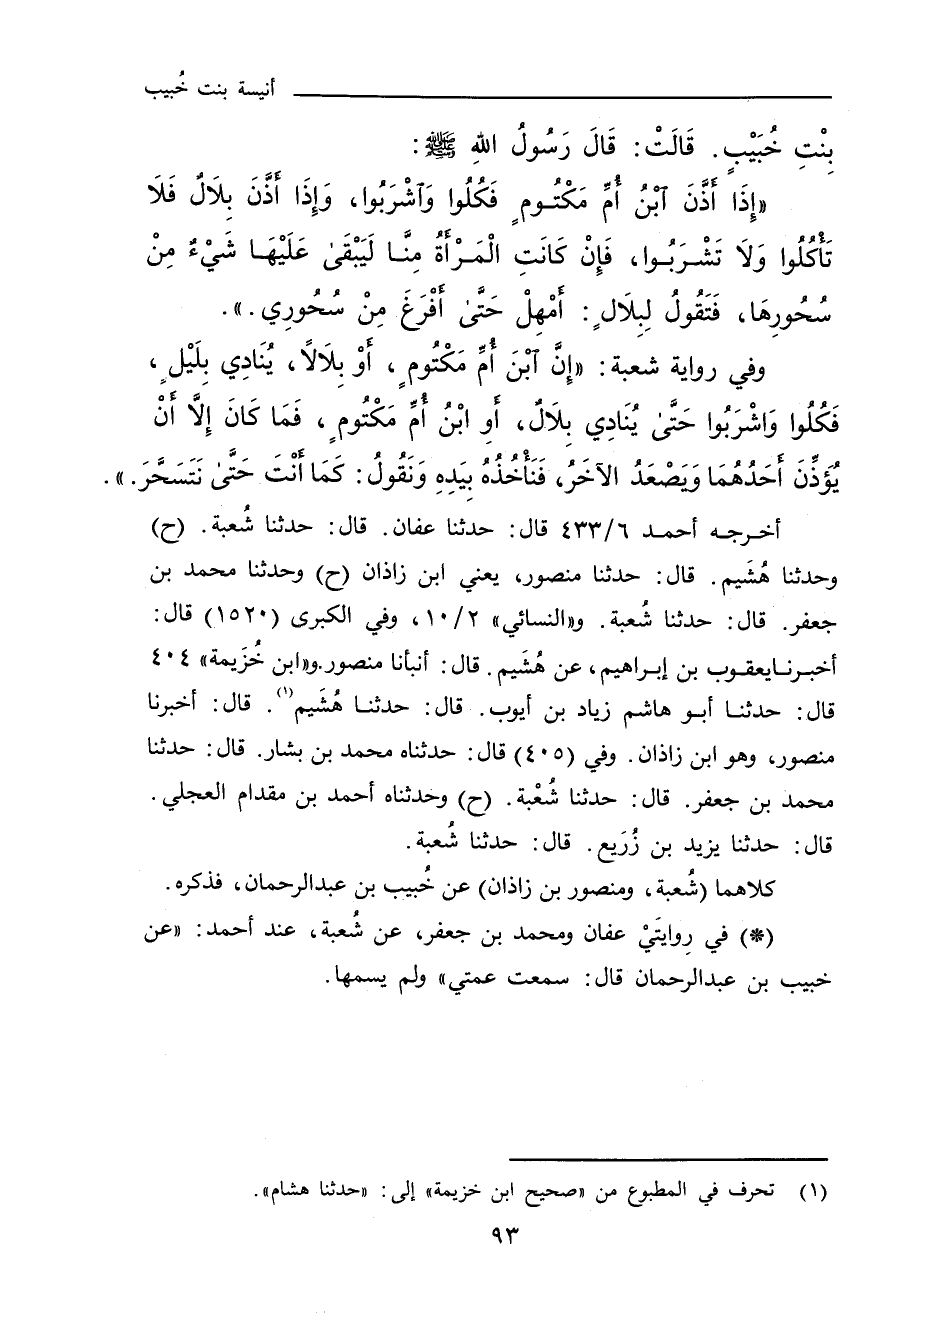 أنيسة بنت خُبيب
بِنْتِ خُبَيْبٍ. قَالَتْ: قَالَ رَسُولُ اللهِ ﷺ:
«إِذَا أَذَّنَ ٱبْنُ أُمِّ مَكْتُومٍ فَكُلُوا وَٱشْرَبُوا، وَإِذَا أَذَّنَ بِلَالٌ فَلَا
تَأْكُلُوا وَلَا تَشْرَبُوا، فَإِنْ كَانَتِ الْمَرْأَةُ مِنَّا لَيَبْقَىٰ عَلَيْهَا شَيْءٌ مِنْ
سُحُورِهَا، فَتَقُولُ لِبِلَالٍ: أَمْهِلْ حَتَّىٰ أَفْرَغَ مِنْ سُحُورِي.».
وفي رواية شعبة: «إِنَّ ٱبْنَ أُمِّ مَكْتُومٍ، أَوْ بِلَالًا، يُنَادِي بِلَيْلٍ،
فَكُلُوا وَاشْرَبُوا حَتَّىٰ يُنَادِي بِلَالٌ، أَو ابْنُ أُمِّ مَكْتُومٍ، فَمَا كَانَ إِلَّا أَنْ
يُؤَذِّنَ أَحَدُهُمَا وَيَصْعَدُ الآخَرُ، فَنَأْخُذُهُ بِيَدِهِ وَنَقُولُ: كَمَا أَنْتَ حَتَّىٰ نَتَسَحَّرَ.».
أخرجه أحمد ٤٣٣/٦ قال: حدثنا عفان. قال: حدثنا شُعبة. (ح)
وحدثنا هُشَيم. قال: حدثنا منصور، يعني ابن زاذان (ح) وحدثنا محمد بن
جعفر. قال: حدثنا شُعبة. و«النسائي» ١٠/٢، وفي الكبرى (١٥٢٠) قال:
أخبرنا يعقوب بن إبراهيم، عن هُشَيم. قال: أنبأنا منصور. و«ابن خُزَيمة» ٤٠٤
قال: حدثنا أبو هاشم زياد بن أيوب. قال: حدثنا هُشَيم(١). قال: أخبرنا
منصور، وهو ابن زاذان. وفي (٤٠٥) قال: حدثناه محمد بن بشار. قال: حدثنا
محمد بن جعفر. قال: حدثنا شُعْبة. (ح) وحدثناه أحمد بن مقدام العجلي.
قال: حدثنا يزيد بن زُرَيع. قال: حدثنا شُعبة.
كلاهما (شُعبة، ومنصور بن زاذان) عن خُبيب بن عبدالرحمان، فذكره.
(*) في روايتَيْ عفان ومحمد بن جعفر، عن شُعبة، عند أحمد: «عن
خبيب بن عبدالرحمان قال: سمعت عمتي» ولم يسمها.
(١) تحرف في المطبوع من «صحيح ابن خزيمة» إلى: «حدثنا هشام».
٩٣